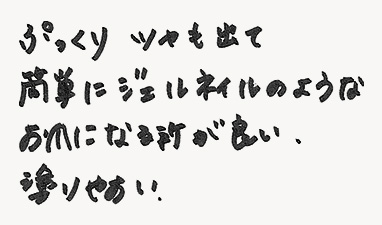 ぷっくり ツヤも出て
簡単に ジェルネイルのような
お爪になる所が良い、
塗りやすい。